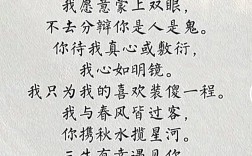 我愿意蒙上双眼，
不去分辩你是人是鬼。
你待我真心或敷衍，
我心如明镜。
我只为我的喜欢装傻一程。
我与春风皆过客，
你携秋水揽星河。